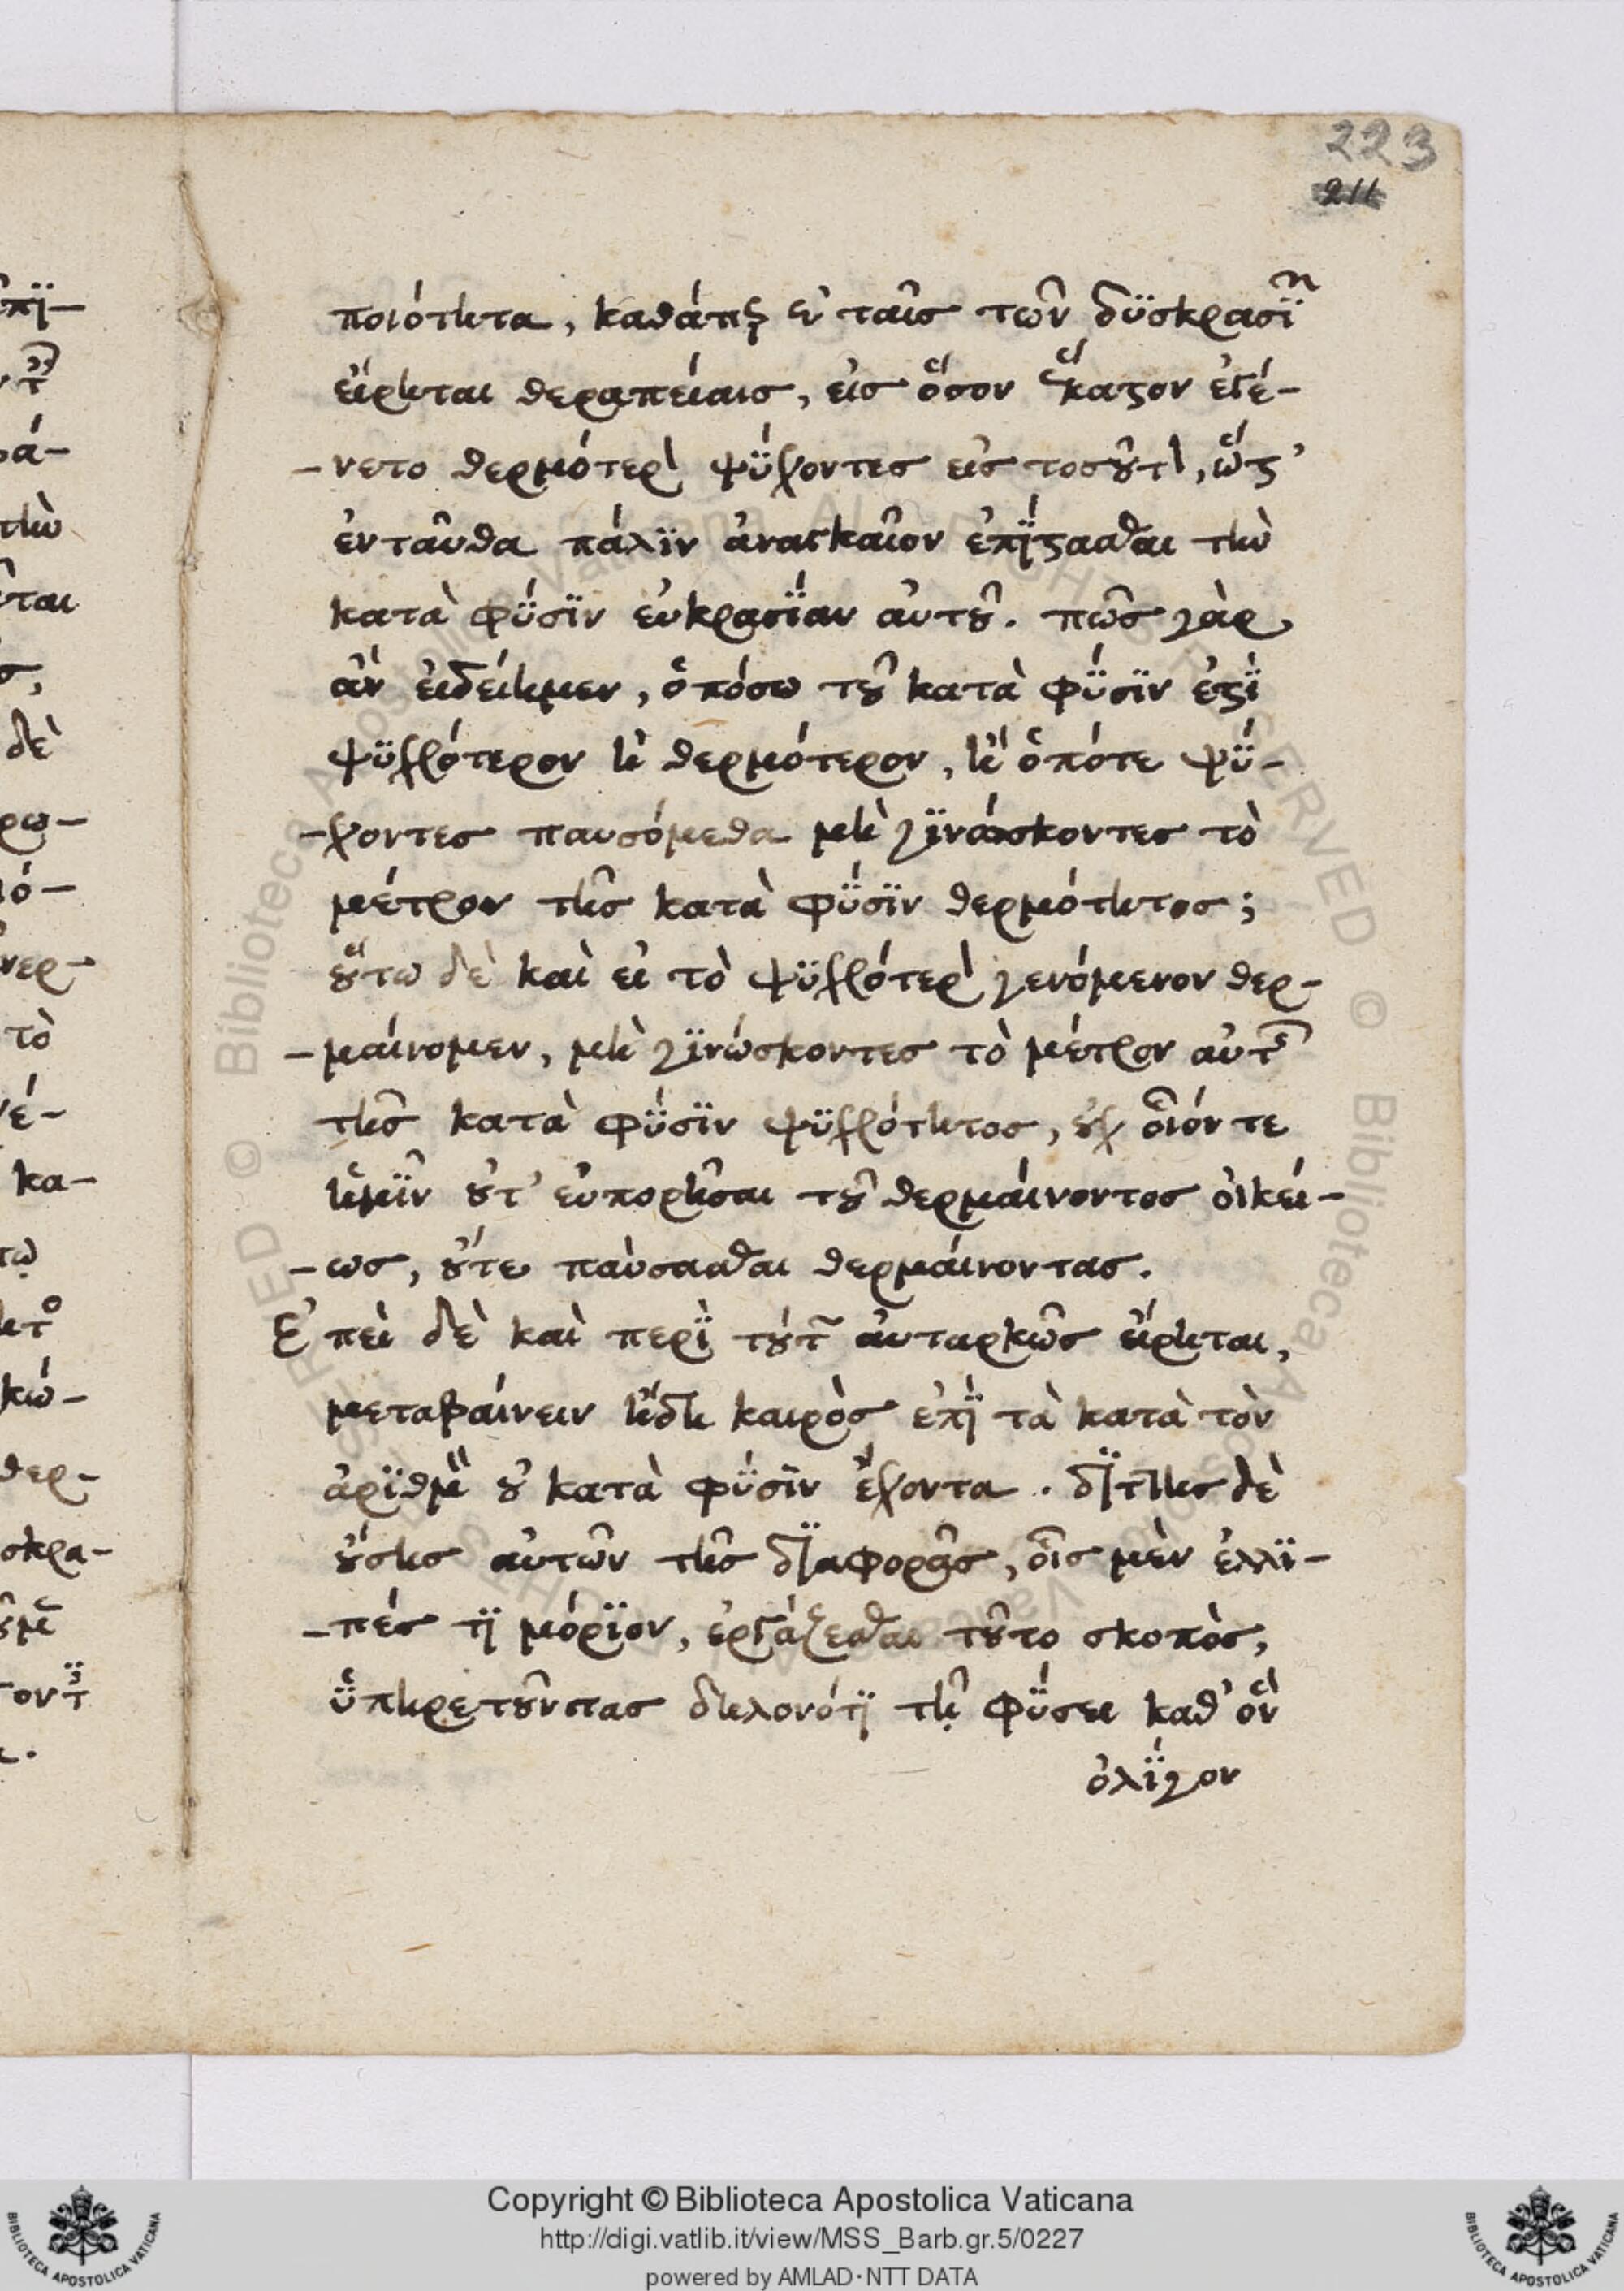 223
211
ποιότητα, καθάπερ ἐν ταῖς τῶν δϋσκρασϊῶν
εἴρηται θεραπείαις, εἰς ὅσον ἕκαστον ἐγέ-
-νετο θερμότερον ψΰχοντες εἰς τοσοῦτον, ὥστ'
ἐνταῦθα πάλϊν ἀναγκαῖον ἐπΐστασθαι τὴν
κατὰ φΰσϊν εὐκρασΐαν αὐτοῦ. πῶς γὰρ
ἂν εἰδείημεν, ὁπόσω τοῦ κατὰ φΰσϊν ἐστῒ
ψϋχρότερον ἢ θερμότερον, ἢ ὁπότε ψΰ-
-χοντες παυσόμεθα μὴ γϊνώσκοντες τὸ
μέτρον τῆς κατὰ φΰσϊν θερμότητος;
οὕτω δὲ καὶ εἰ τὸ ψϋχρότερον γενόμενον θερ-
-μαίνομεν, μὴ γϊνώσκοντες τὸ μέτρον αὐτοῦ
τῆς κατὰ φΰσϊν ψϋχρότητος, οὐχ οἷόν τε
ἡμῖν οὔτ' εὐπορῆσαι τοῦ θερμαίνοντος οἰκεί-
-ως, οὔτε παύσασθαι θερμαίνοντας.
Ἐπεὶ δὲ καὶ περῒ τούτων αὐτάρκως εἴρηται,
μεταβαίνειν ἤδη καιρὸς ἐπῒ τὰ κατὰ τὸν
ἀρϊθμὸν οὐ κατὰ φΰσϊν ἔχοντα. διττῆς δὲ
οὔσης αὐτῶν τῆς δϊαφορᾶς, οἷς μὲν ἐλλϊ-
-πές τϊ μόρϊον, ἐργάζεσθαι τοῦτο σκοπὸς,
ὑπηρετοῦντας δηλονότϊ τῇ φΰσει καθ' ὃν
ὀλΐγον
Copyright © Biblioteca Apostolica Vaticana
http://digi.vatlib.it/view/MSS_Barb.gr.5/0227
powered by AMLAD·NTT DATA